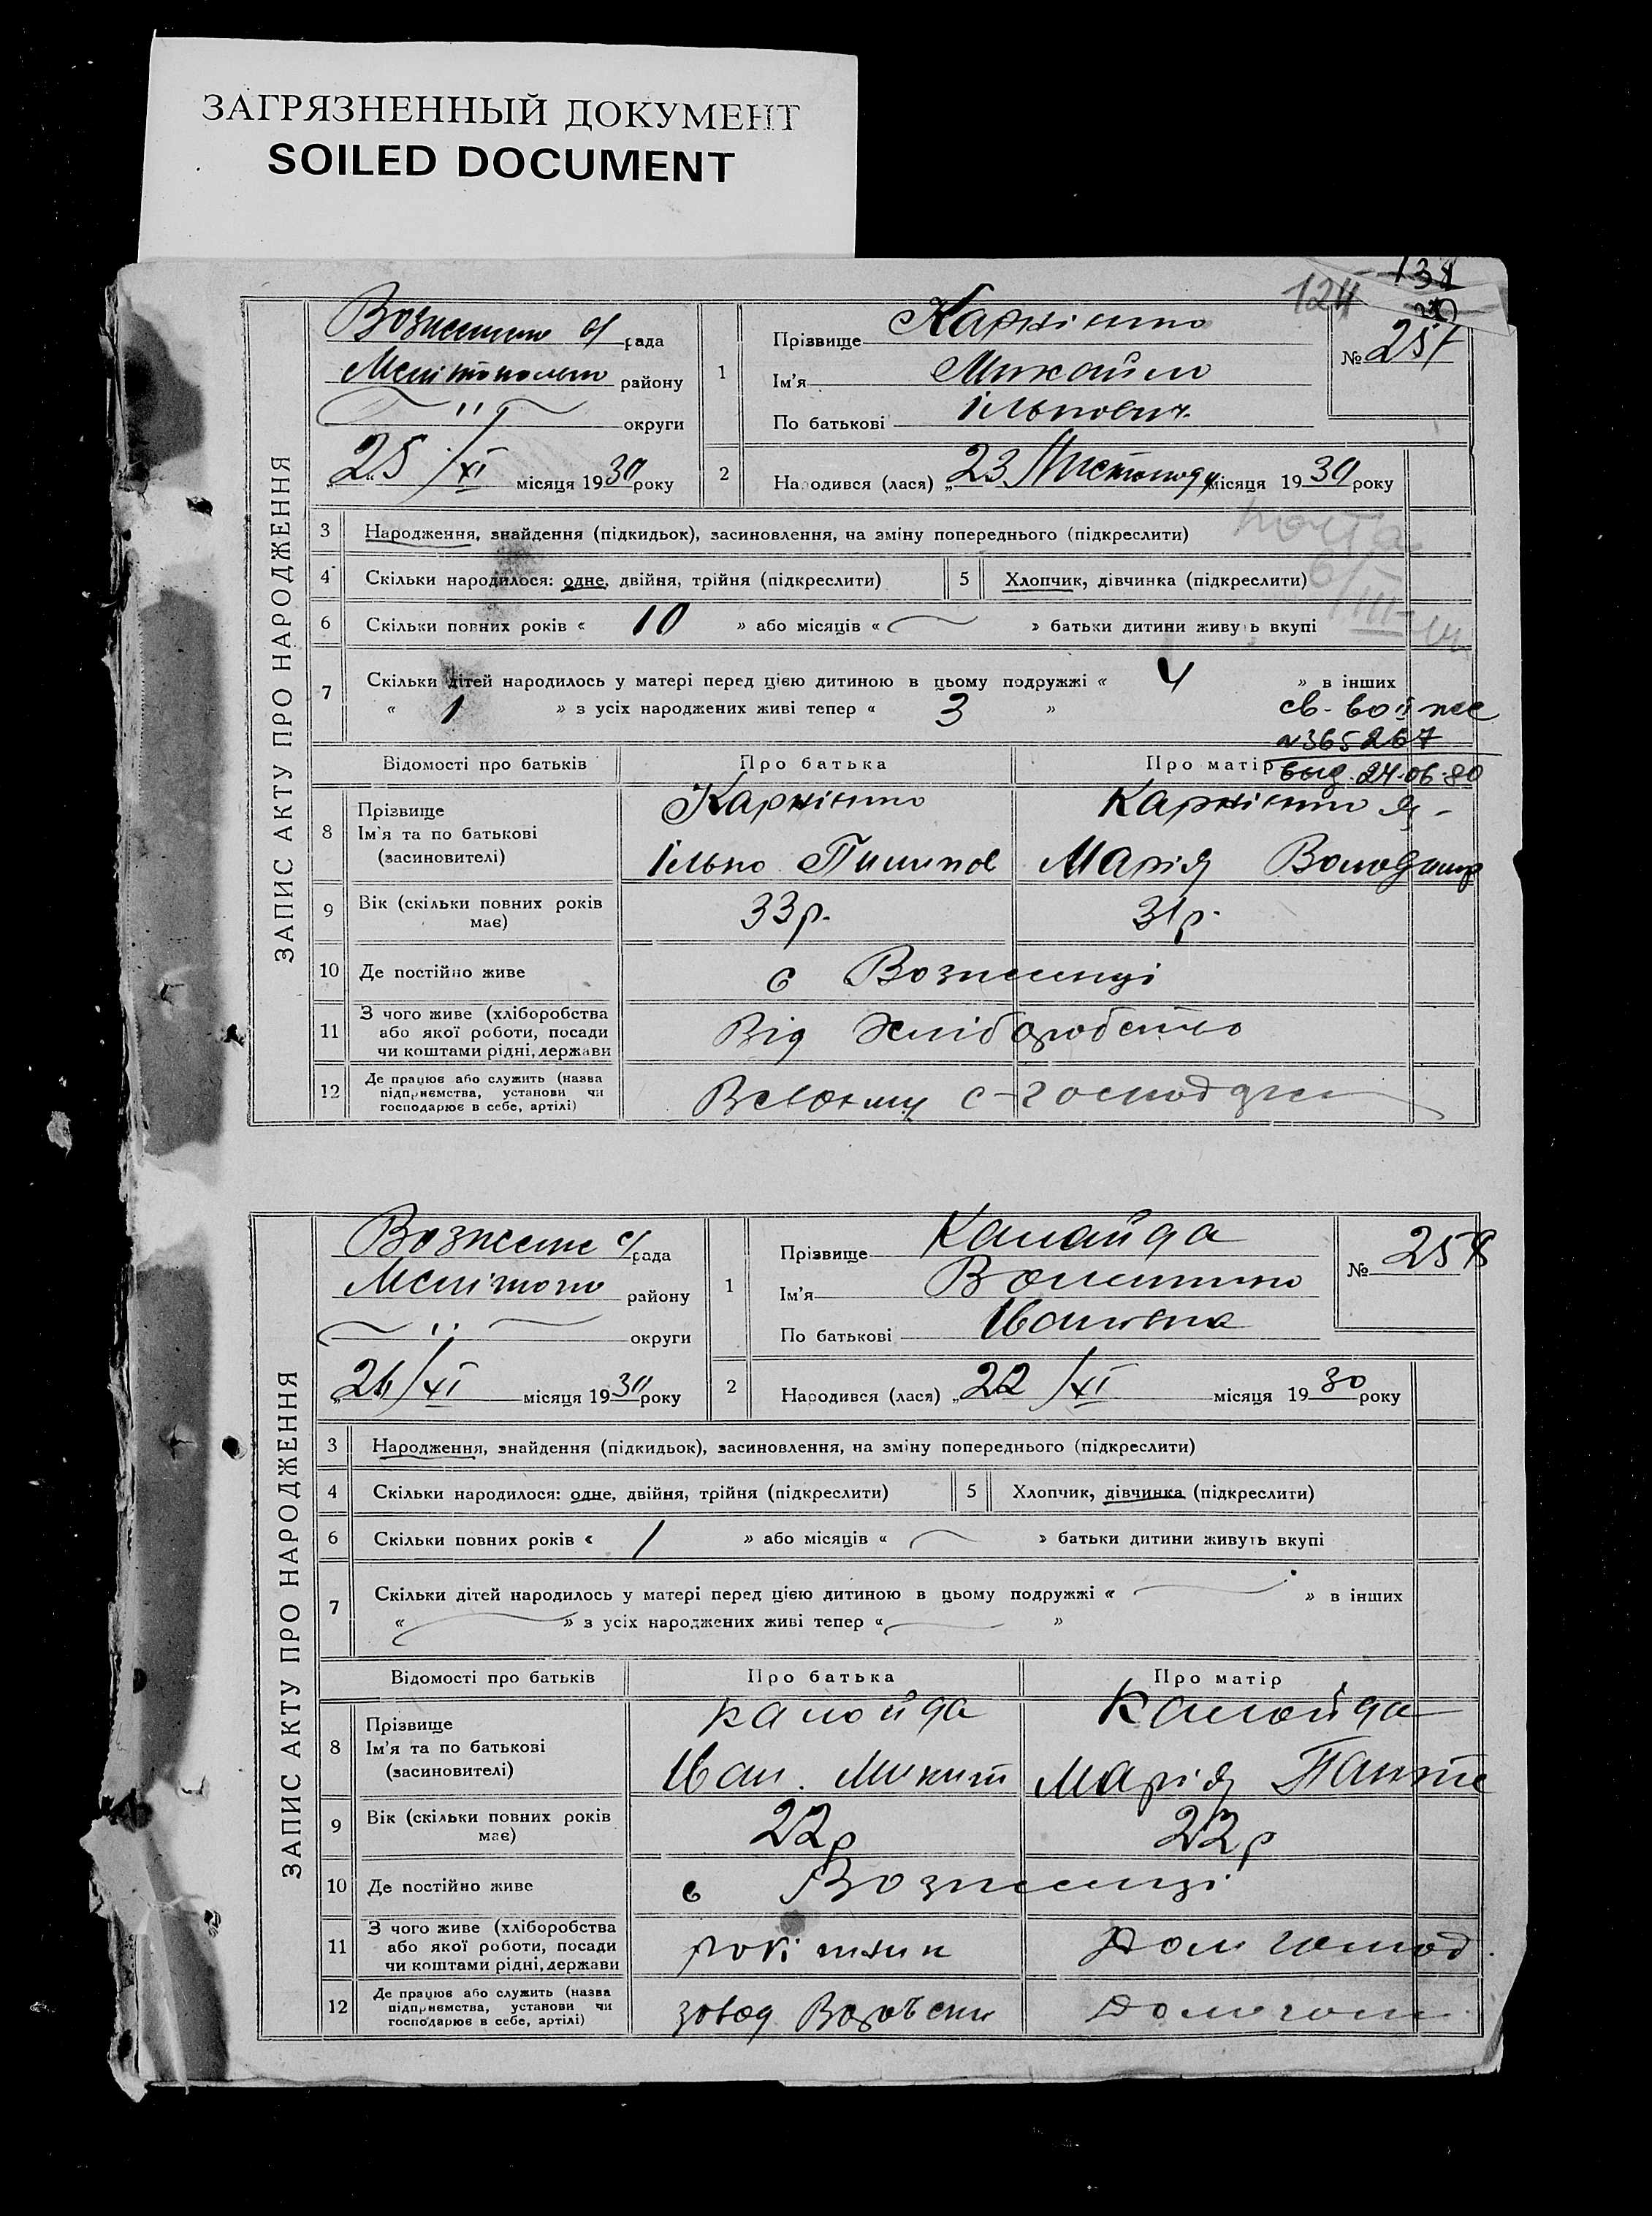 ЗАГРЯЗНЕННЫЙ ДОКУМЕНТ
SOILED DOCUMENT
124
ЗАПИС АКТУ ПРО НАРОДЖЕННЯ
с/рада
району
округи
25/XI місяця 1930 року
1
Прізвище
Ім'я Михайло
По батькові Ількович
№ 257
2
Народився (лася) „23 Листопаду місяця 1930 року
3 Народження, знайдення (підкидьок), засиновлення, на зміну попереднього (підкреслити)
почта
4 Скільки народилося: одне, двійня, трійня (підкреслити)
5 Хлопчик, дівчинка (підкреслити)
6 Скільки повних років « 10 » або місяців « » батьки дитини живуть вкупі
7 Скільки дітей народилось у матері перед цією дитиною в цьому подружжі « 4 » в інших
« 1 » з усіх народжених живі тепер « 3 »
№365267
выд. 24.06.80
Відомості про батьків Про батька Про матір
8 Прізвище
Ім'я та по батькові
(засновителі)
Ілько Пилипов Марія Володимир
9 Вік (скільки повних років
має)
33 р. 31 р.
10 Де постійно живе с Вознесенці
11 З чого живе (хліборобства
або якої роботи, посади
чи коштами рідні, держави
Від Хліборобство
12 Де працює або служить (назва
підприємства, установи чи
господарює в себе, артілі)
ЗАПИС АКТУ ПРО НАРОДЖЕННЯ
с/рада
району
округи
26/XI місяця 1930 року
1
Прізвище Калайда
Ім'я Валентина
По батькові Івановна
№ 258
2
Народився (лася) „22/XI місяця 1930 року
3 Народження, знайдення (підкидьок), засиновлення, на зміну попереднього (підкреслити)
4 Скільки народилося: одне, двійня, трійня (підкреслити)
5 Хлопчик, дівчинка (підкреслити)
6 Скільки повних років « 1 » або місяців « » батьки дитини живуть вкупі
7 Скільки дітей народилось у матері перед цією дитиною в цьому подружжі « » в інших
« » з усіх народжених живі тепер « »
Відомості про батьків Про батька Про матір
8 Прізвище
Ім'я та по батькові
(засиновителі)
Калайда Калайда
Іван Микит Марія Панте
9 Вік (скільки повних років
має)
22 р 22 р
10 Де постійно живе с Вознесенці
11 З чого живе (хліборобства
або якої роботи, посади
чи коштами рідні, держави
Дом господ.
12 Де працює або служить (назва
підприємства, установи чи
господарює в себе, артілі)
завод